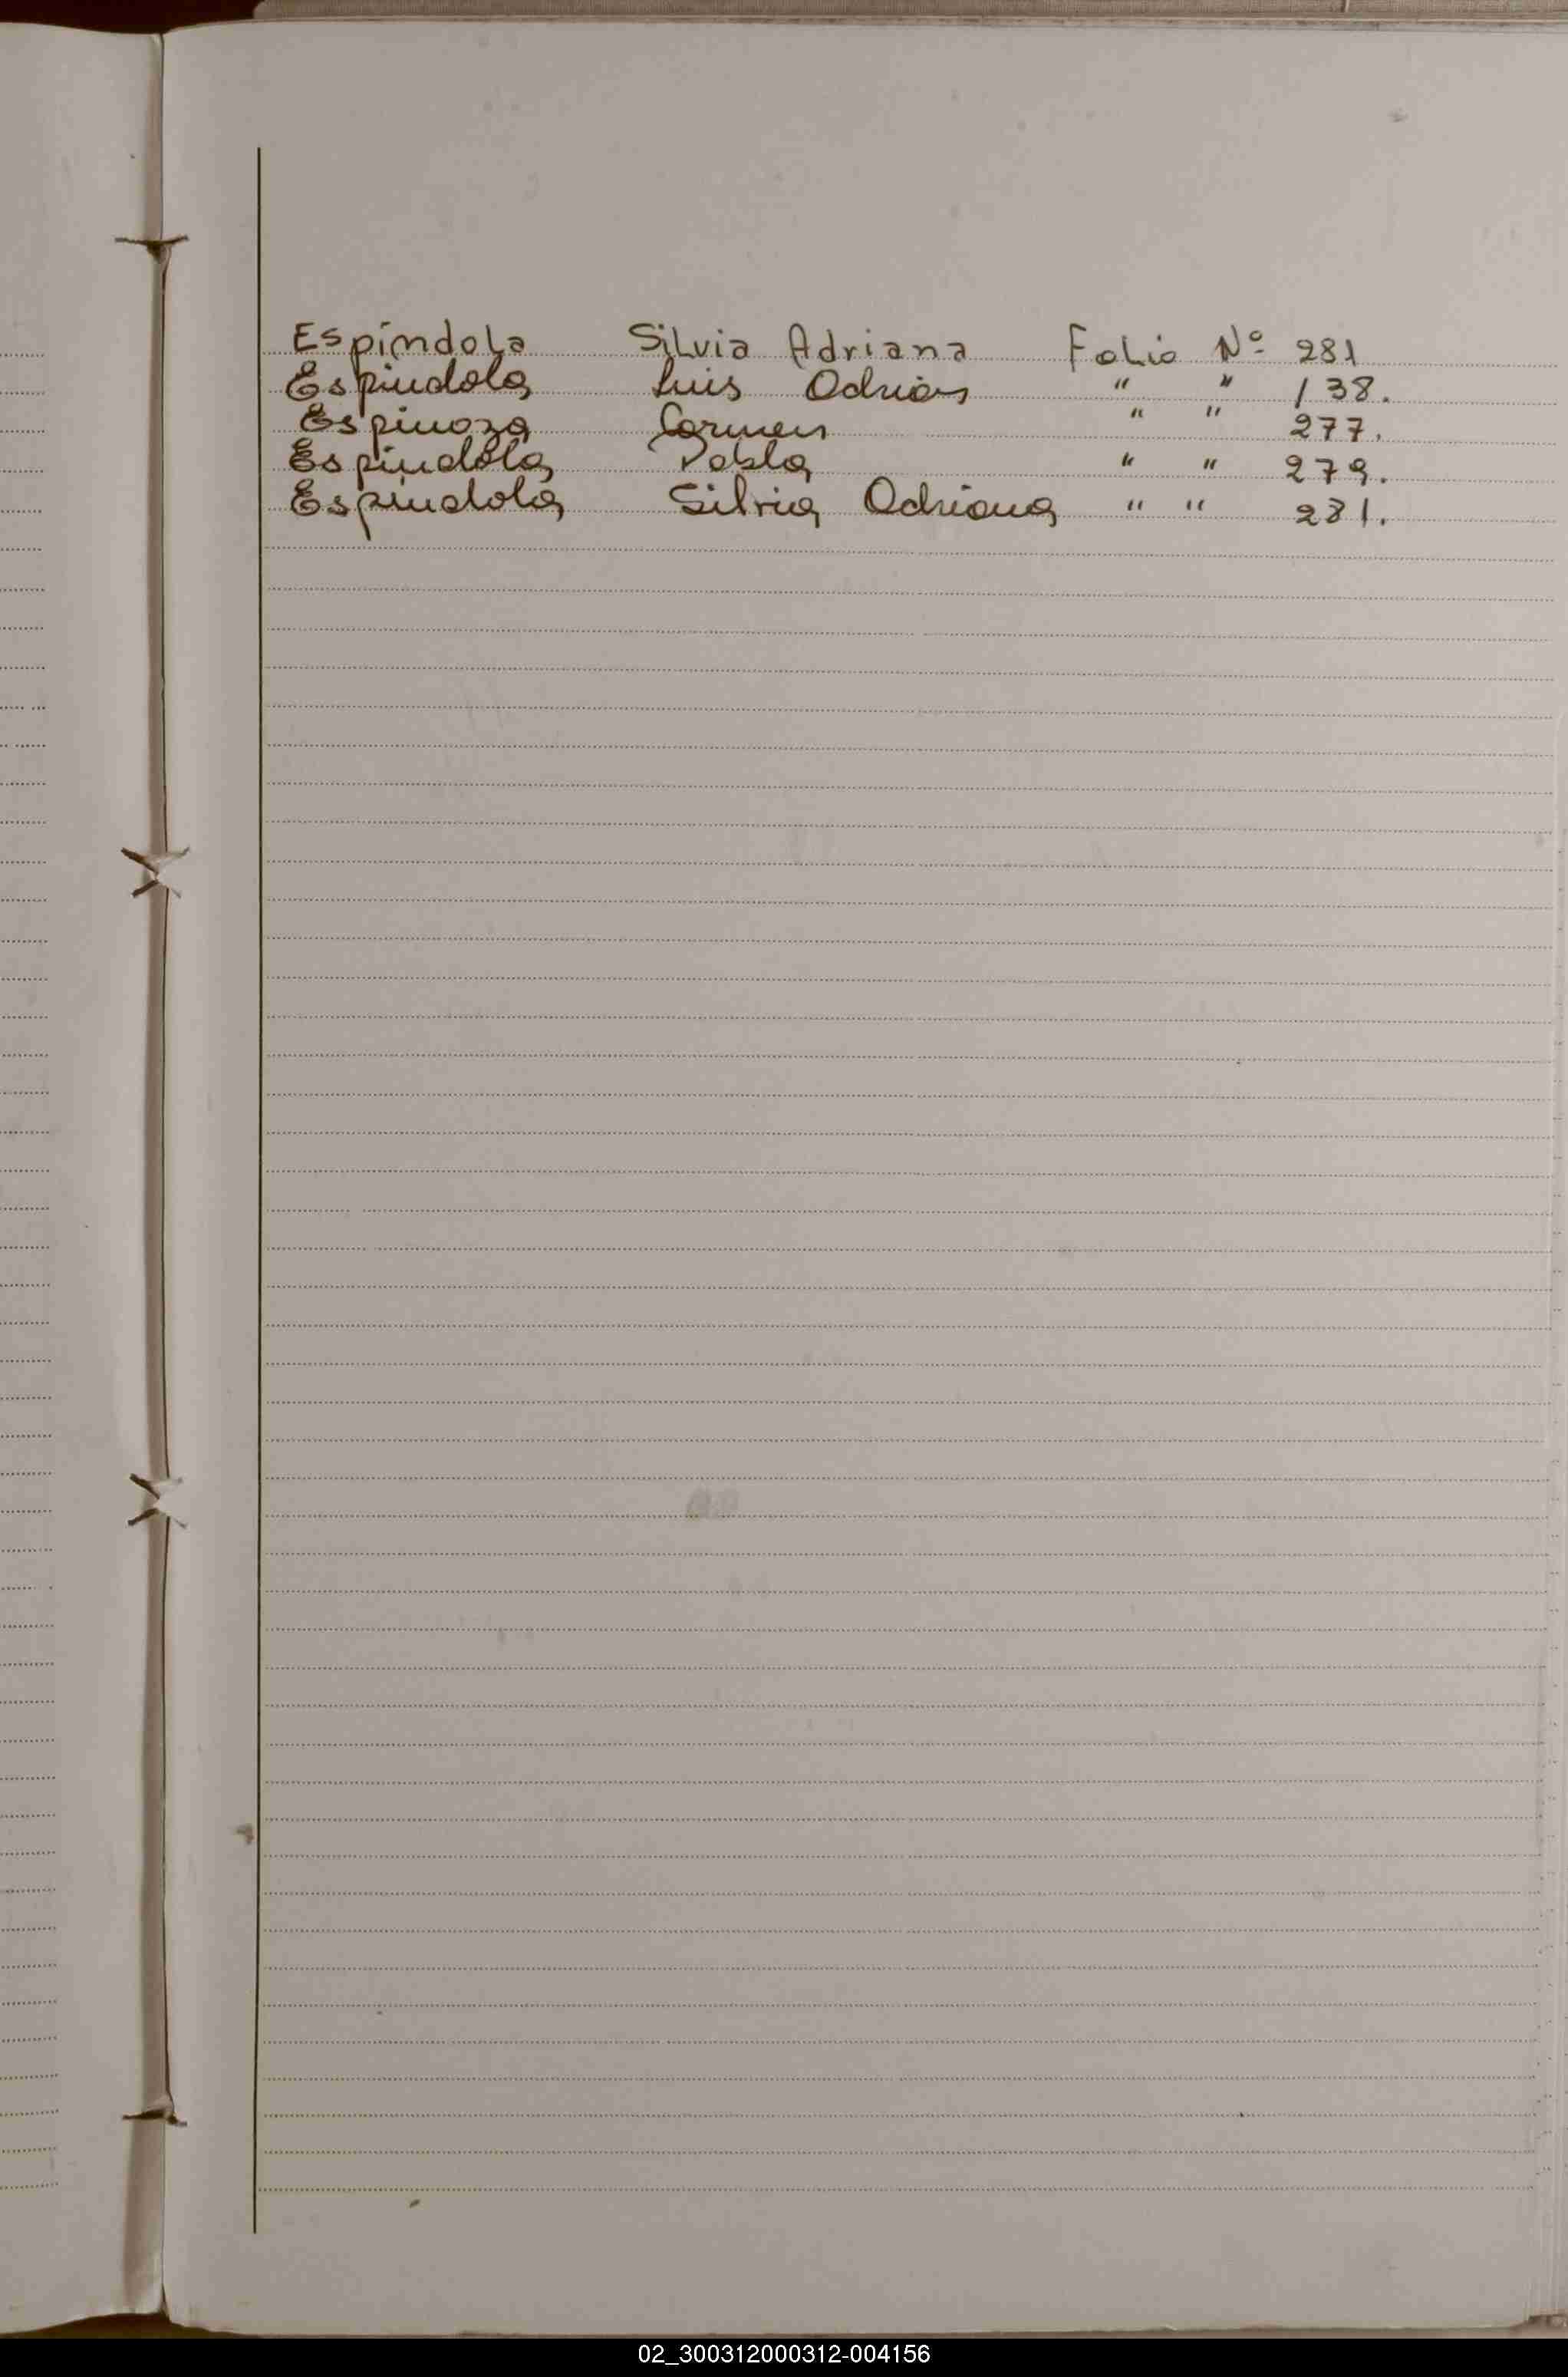 Espíndola Silvia Adriana Folio Nº 281
Espindola Luis Adrian " " 138.
Espinoza Carmen " " 277.
Espindola Pabla " " 279.
Espindola Silvia Adriana " " 281.
02_300312000312-004156